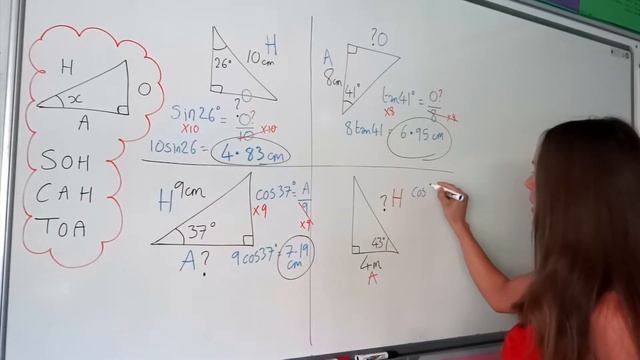 H
x
O
A
SOH
CAH
TOA
26°
10cm
H
?
O
sin26° = O?
10
x10
x10
10sin26 = 4.83cm
?O
A
8cm
41°
tan41° = O?
8
x8
x8
8tan41 = 6.95cm
H
9cm
37°
A?
cos37° = A
9
x9
x9
9cos37 = 7.19
cm
?H
43°
4m
A
cos